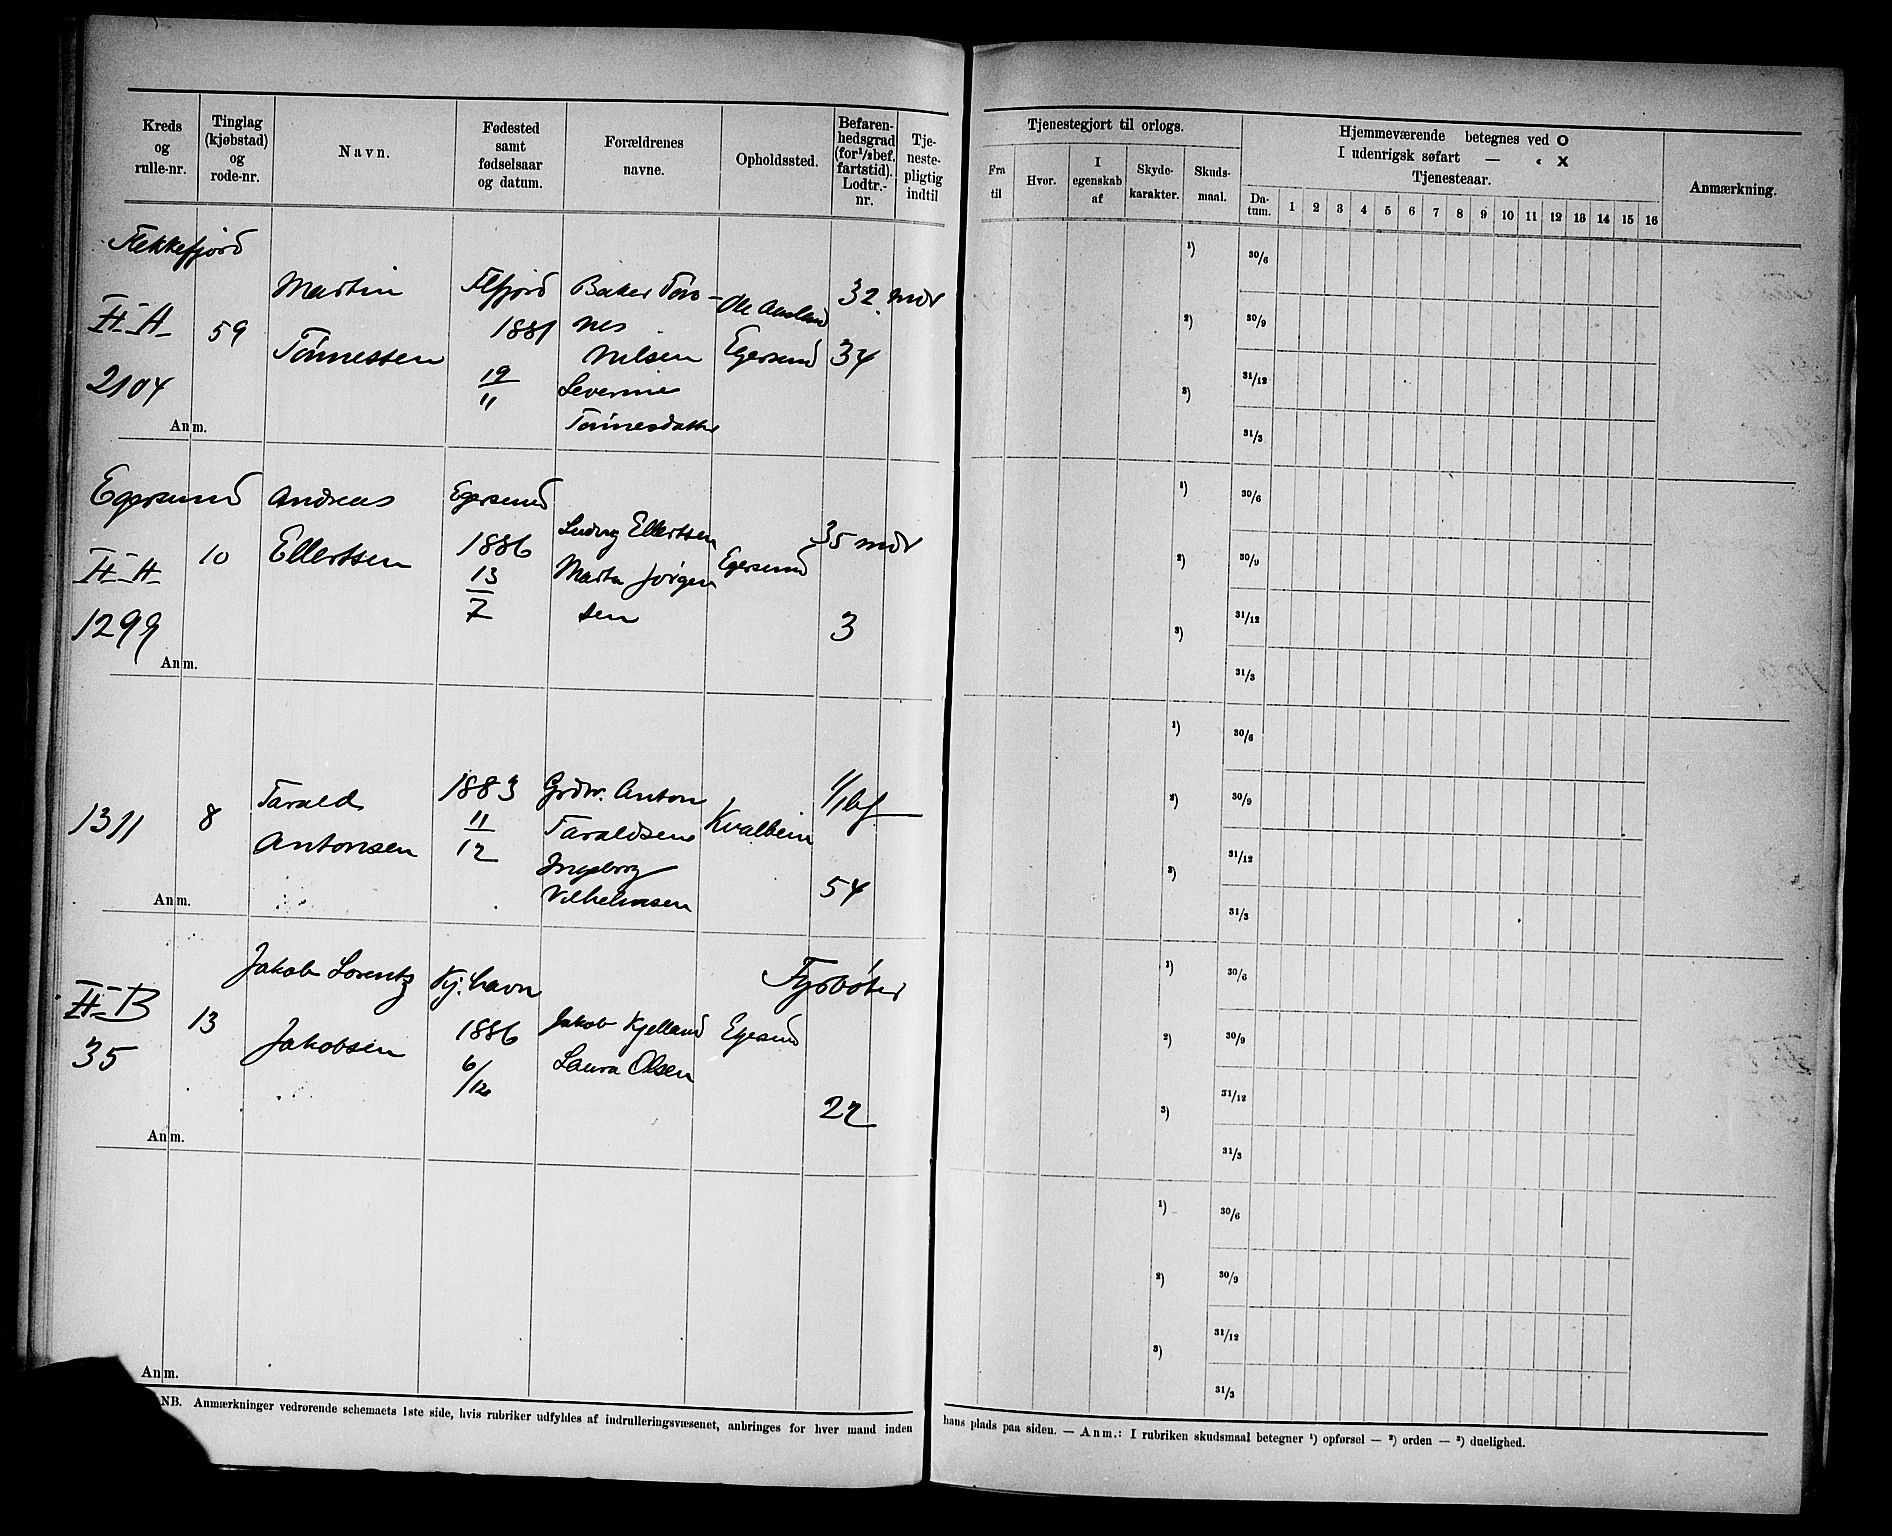 Kreds og rulle-nr.
Tinglag (kjøbstad) og rode-nr.
Navn.
Fødested samt fødselsaar og datum.
Forældrenes navne.
Opholdssted.
Befaren-hedsgrad (for 1/2 bef. fartstid). Lodtr.-nr.
Tje-neste-pligtig indtil
Tjenestegjort til orlogs.
Fra til
Hvor.
I egenskab af
Skyde-karakter.
Skuds-maal.
Hjemmeværende betegnes ved O
I udenrigsk søfart — « X
Tjenesteaar.
Da-tum. 1 2 3 4 5 6 7 8 9 10 11 12 13 14 15 16
Anmærkning.
Flekkefjord
II-A
2104
59
Martin
Tönnessen
Flfjord
1881
19
11
Baker Tön-
nes
Nilsen
Severine
Tönnesdatter
Egersund
32 mdr
34
Anm.
1) 30/6
2) 30/9
3) 31/12
31/3
Egersund
II-A
1299
10
Andreas
Ellertsen
Egersund
1886
13
7
Ludvig Ellertsen
Marta Jörgen
sen
Egersund
35 mdr
3
Anm.
1) 30/6
2) 30/9
3) 31/12
31/3
1311
8
Tarald
Antonsen
1883
11
12
Grdbr. Anton
Taraldsen
Ingeborg
Vilhelmsen
Kvalbein
1/1 bef
54
Anm.
1) 30/6
2) 30/9
3) 31/12
31/3
II-B
35
13
Jakob Lorentz
Jakobsen
Kj.havn
1886
6/12
Jakob Kjelland
Laura Olsen
Egersund
Fyrbøter
22
Anm.
1) 30/6
2) 30/9
3) 31/12
31/3
Anm.
1) 30/6
2) 30/9
3) 31/12
31/3
NB. Anmærkninger vedrørende schemaets 1ste side, hvis rubriker udfyldes af indrulleringsvæsenet, anbringes for hver mand inden
hans plads paa siden. — Anm.: I rubriken skudsmaal betegner 1) opførsel — 2) orden — 3) duelighed.